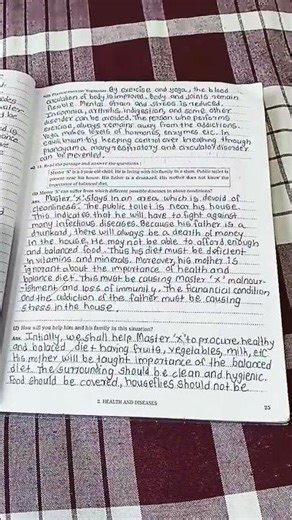 By exercise and yoga, the blood
circulation of body is improved. Body and joints remain
flexible. Mental strain and stress is reduced.
Insomnia, arthritis, indigestion, and some other
disorder can be avoided. The person who performs
exercise, always remains away from the addictions.
Yoga makes levels of hormones, enzymes etc. in
equilibrium by keeping control over breathing through
pranayama, many respiratory and circulatory disorder
can be prevented.
Read the passage and answer the questions :
Master 'X' is a 3 year old child. He is living with his family in a slum. Public toilet is
present near his house. His father is a drunkard. His mother does not know the
importance of balanced diet.
(1) Master 'X' can suffer from which different possible diseases in above conditions?
Ans. Master 'X' stays in an area which is devoid of
cleanliness. The public toilet is near his house.
This indicates that he will have to fight against
many infectious diseases. Because his father is a
drunkard, there will always be a death of money
in the house. He may not be able to afford enough
and balanced food. Thus his diet must be deficient
in vitamins and minerals. Moreover, his mother is
ignorant about the importance of health and
balance diet. This must be causing Master 'X' malnour-
-ishment and loss of immunity. The financial condition
and the addiction of the father must be causing
stress in the house.
(2) How will you help him and his family in this situation?
Ans. Intially, we shall help Master 'X' to procure healthy
and balaced diet having fruits, vegetables, milk, etc
His mother will be taught importance of the balanced
diet. The surrounding should be clean and hygienic.
Food should be covered, houseflies should not be
2. HEALTH AND DISEASES
23